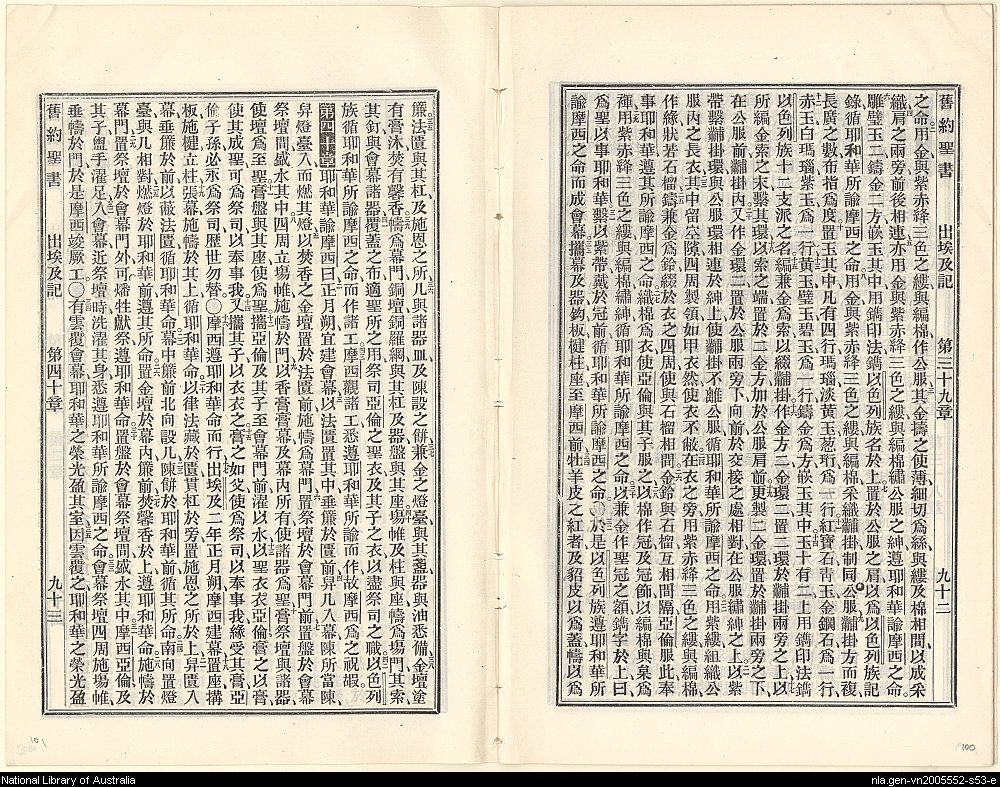 舊約聖書 出埃及記 第三十九章 九十二
之命用金與紫赤絳三色之縷與編棉作公服其金擣之使薄細切爲絲與縷及棉相間以成采
織肩之兩旁前後相連亦用金與紫赤絳三色之縷與編棉繡公服之紳遵耶和華諭摩西之命
雕璧玉二鑄金二方嵌玉其中用鐫印法鐫以色列族名於上置於公服之肩以爲以色列族記
錄循耶和華所諭摩西之命用金與紫赤絳三色之縷與編棉采織黼掛制同公服黼掛方而複
長廣之數布指爲度置玉其中凡有四行瑪瑙淡黃玉葱珩爲一行紅寶石靑玉金鋼石爲一行
赤玉白瑪瑙紫玉爲一行黃玉璧玉碧玉爲一行鑄金爲方嵌玉其中玉十有二上用鐫印法鐫
以色列族十二支派之名編兼金爲索以綴黼掛作金方二金環二置二環於黼掛兩旁之上以
所編金索之末繫其環以索之端置於二金方加於公服肩前更製二金環置於黼掛兩旁之下
在公服前黼掛內又作金環二置於公服兩旁下向前於交接之處相對在公服繡紳之上以紫
帶繫黼掛環與公服環相連於紳上使黼掛不離公服循耶和華所諭摩西之命用紫縷組織公
服內之長衣其中留空隙四周製領如甲衣然使衣不敝在衣之旁用紫赤絳三色之縷與編棉
作緣狀若石榴鑄兼金爲鈴綴於衣之四周使與石榴相間金鈴與石榴互相間隔亞倫服此奉
事耶和華遵其所諭摩西之命織棉爲衣使亞倫與其子服之以棉作冠及冠飾以編棉與枲爲
褌用紫赤絳三色之縷與編棉繡紳循耶和華所諭摩西之命以兼金作聖冠之額鐫字於上曰
爲聖以事耶和華繫以紫帶戴於冠前循耶和華所諭摩西之命〇於是以色列族遵耶和華所
諭摩西之命而成會幕攜幕及器鉤板楗柱座至摩西前牡羊皮之紅者及貂皮以爲蓋幬以爲
簾法匱與其杠及施恩之所几與諸器皿及陳設之餅兼金之燈臺與其盞器與油悉備金壇塗
有膏沐焚有馨香幬爲幕門銅壇銅羅網與其杠及器盤與其座場帷及柱與座幬爲場門其索
其釘與會幕諸器覆蓋之布適聖所之用祭司亞倫之聖衣及其子之衣以盡祭司之職以色列
族循耶和華所諭摩西之命而作諸工摩西觀諸工悉遵耶和華所諭而作故摩西爲之祝嘏
第四十章耶和華諭摩西曰正月朔宜建會幕以法匱置其中垂簾於匱前舁几入幕陳所當陳
舁燈臺入而燃其燈以焚香之金壇置於法匱前施幬爲幕門置祭壇於會幕門前置盤於會幕
祭壇間盛水其中四周立場帷施幬於門以香膏膏幕及幕內所有使諸器爲聖膏祭壇與諸器
使壇爲至聖膏盤與其座使爲聖攜亞倫及其子至會幕門前濯以水以聖衣衣亞倫膏之以膏
使其成聖可爲祭司以奉事我又攜其子以衣衣之膏之如父使爲祭司以奉事我緣受其膏亞
倫子孫必永爲祭司歷世勿替〇摩西遵耶和華命而行出埃及二年正月朔摩西建幕置座搆
板施楗立柱張幕施幬於其上循耶和華命以律法藏於匱貫杠於旁置施恩之所於上舁匱入
幕垂簾於前以蔽法匱循耶和華命幕中簾前北向設几陳餅於耶和華前循其所命南向置燈
臺與几相對燃燈於耶和華前遵其所命置金壇於幕內簾前焚馨香於上遵耶和華命施幬於
幕門置祭壇於會幕門外可燔牲獻祭遵耶和華命置盤於會幕祭壇間盛水其中摩西亞倫及
其子盥手濯足入會幕近祭壇時洗濯其身悉遵耶和華所諭摩西之命會幕祭壇四周施場帷
垂幬於門於是摩西竣厥工〇有雲覆會幕耶和華之榮光盈其室因雲覆之耶和華之榮光盈
舊約聖書 出埃及記 第四十章 九十三
101
100
National Library of Australia
nla.gen-vn2005552-s53-e